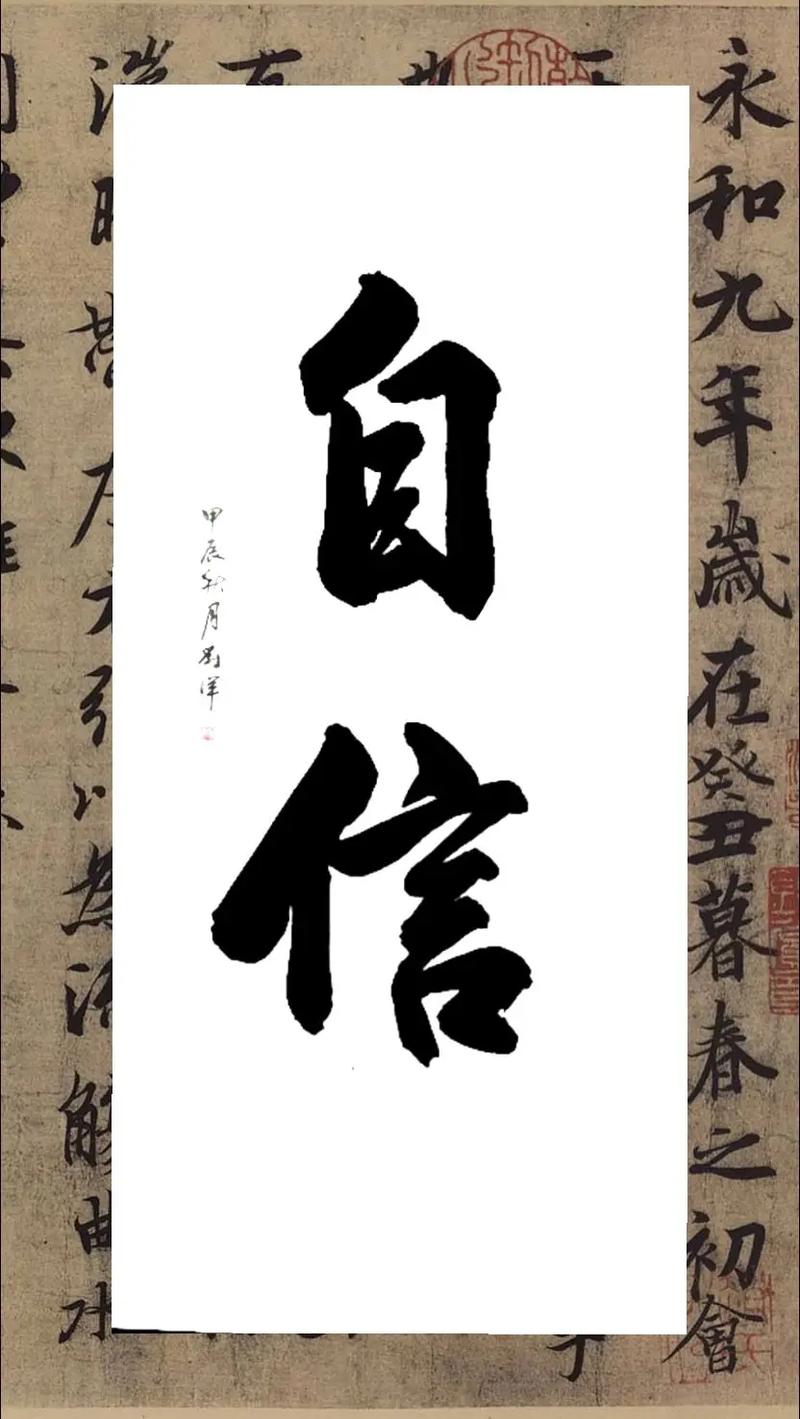 永和九年歲在癸丑暮春之初會
自信
甲辰秋月劉洋
湍暎帶左右引以為流觴曲水